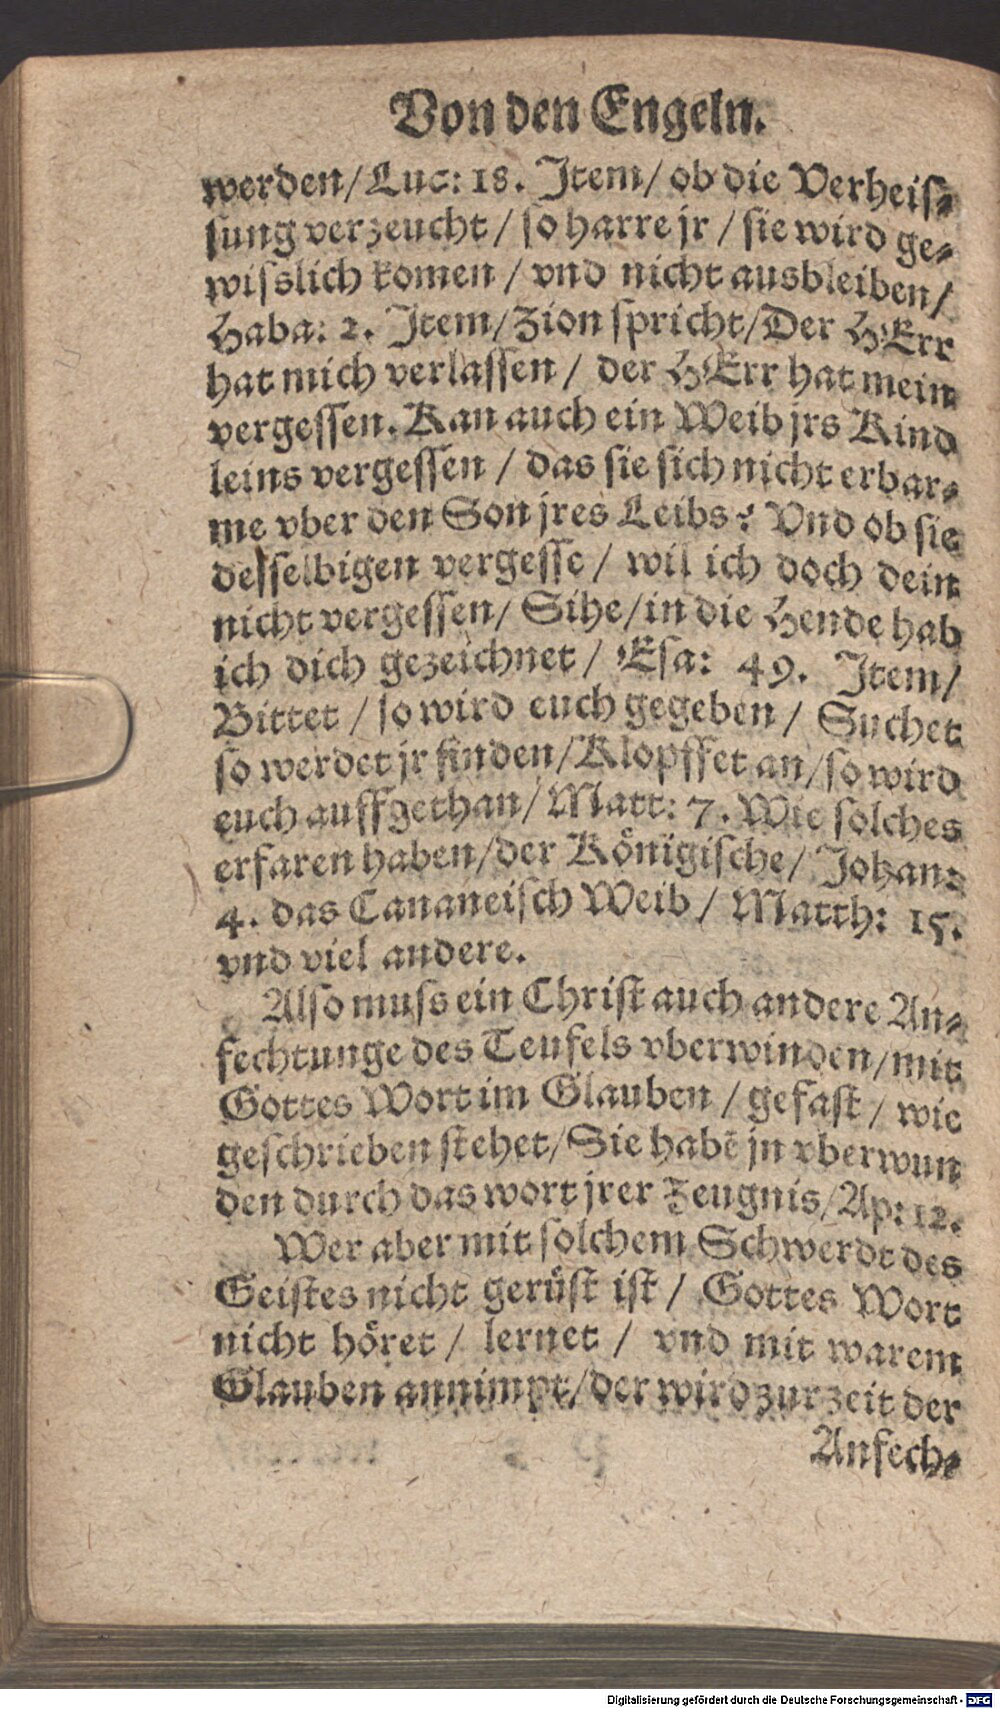 Von den Engeln.
werden/Luc: 18. Item/ ob die Verheis-
sung verzeucht / so harre jr / sie wird ge-
wisslich komen / vnd nicht ausbleiben/
Haba: 2. Item/Zion spricht/Der HErr
hat mich verlassen / der HErr hat mein
vergessen. Kan auch ein Weib jrs Kind
leins vergessen / das sie sich nicht erbar-
me vber den Son jres Leibs? Vnd ob sie
desselbigen vergesse / wil ich doch dein
nicht vergessen/ Sihe/in die Hende hab
ich dich gezeichnet / Esa: 49. Item/
Bittet / so wird euch gegeben / Suchet
so werdet jr finden/Klopffet an/so wird
euch auffgethan/Matt: 7. Wie solches
erfaren haben/der Königische/ Johan:
4. das Cananeisch Weib / Matth: 15.
vnd viel andere.
Also muss ein Christ auch andere An-
fechtunge des Teufels vberwinden/mit
Gottes Wort im Glauben / gefast / wie
geschrieben stehet/Sie habē jn vberwun
den durch das wort jrer Zeugnis/Ap: 12.
Wer aber mit solchem Schwerdt des
Geistes nicht gerüst ist / Gottes Wort
nicht höret / lernet / vnd mit warem
Glauben annimpt/der wird zur zeit der
Anfech-
Digitalisierung gefördert durch die Deutsche Forschungsgemeinschaft - DFG